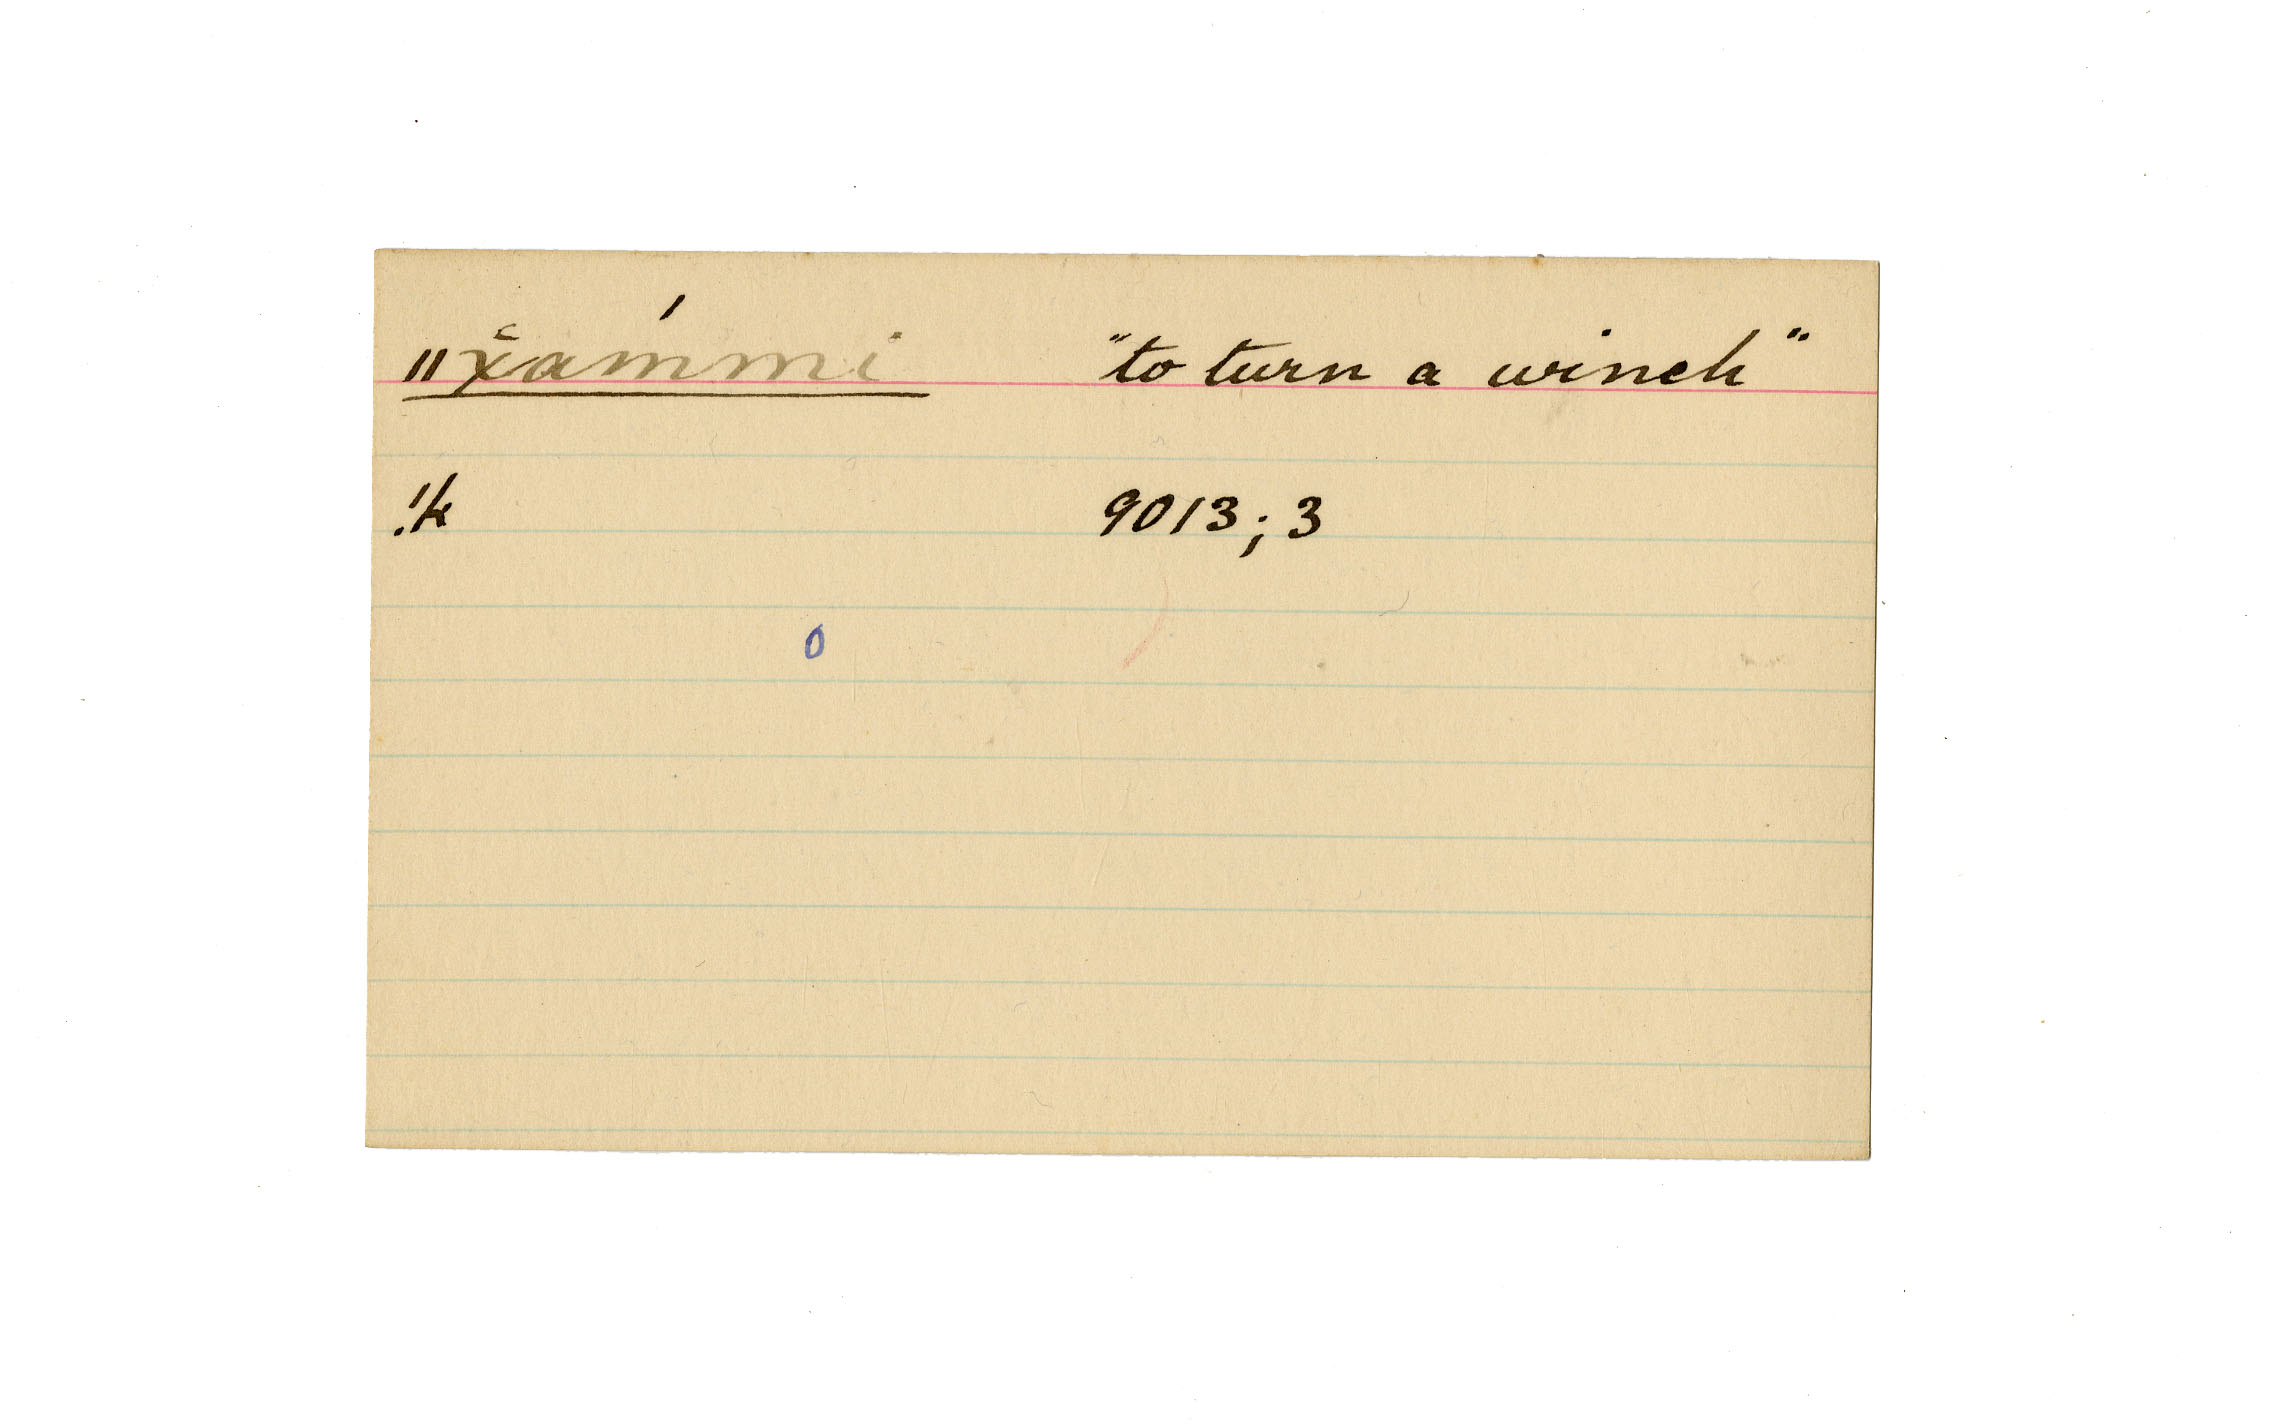 ǁx̆ámmi "to turn a winch"
!k 9013; 3
0